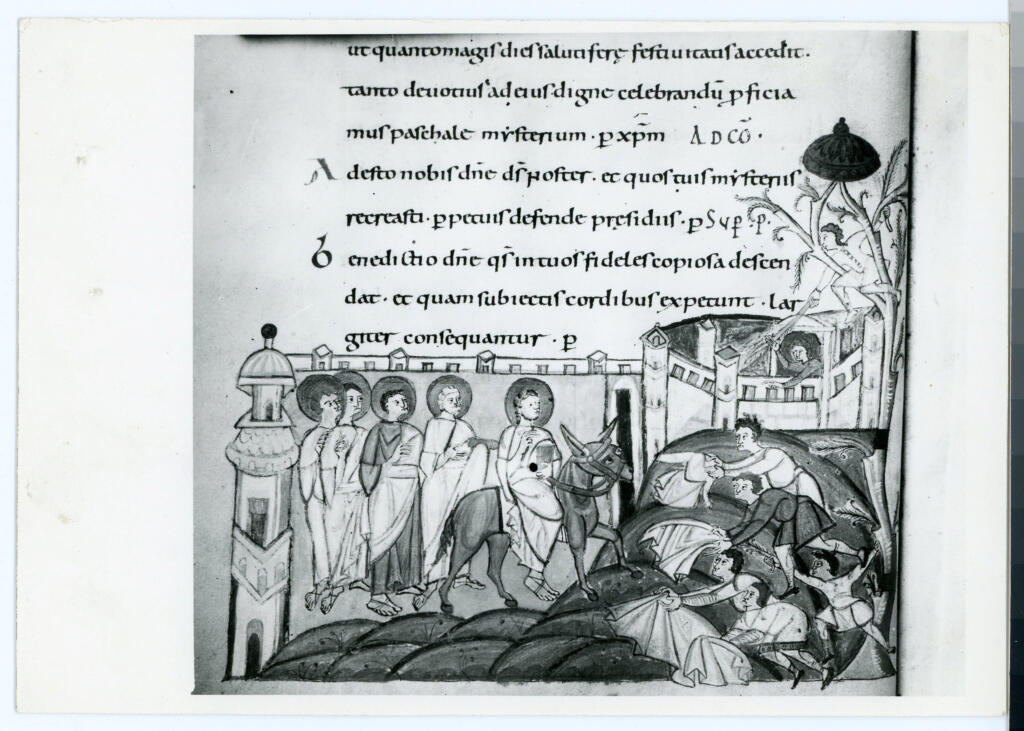 ut quanto magis dies salutiferę festiuitatis accedit.
tanto deuotius ad eius digne celebrandū ꝑficia
mus paschale mẏsterium · ꝑ xp̄m AD CŌ·
Adesto nobis dn̄e ds̄ noster. et quos tuis mẏsteriis
recreasti · ꝑpetuis defende pręsidiis · ꝑ Suꝑ · p̄.
Benedictio dn̄e qs̄ in tuos fideles copiosa descen
dat · et quam subiectis cordibus expetunt · lar
giter consequantur · ꝑ